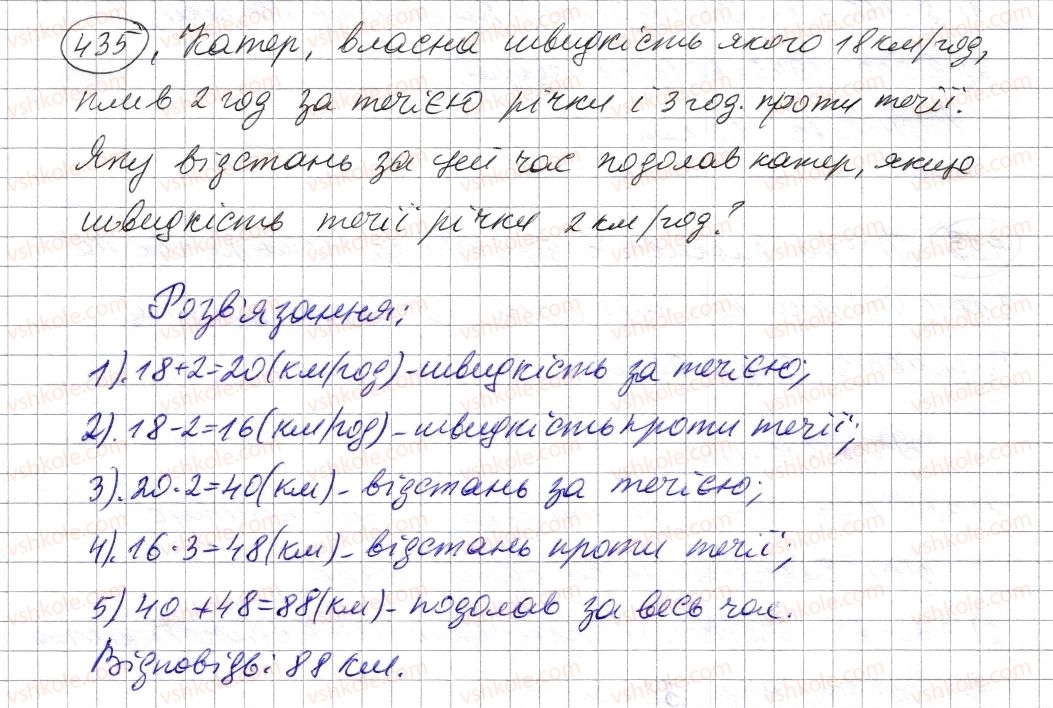 435, Катер, власна швидкість якого 18 км/год,
плив 2 год за течією річки і 3 год. проти течії.
Яку відстань за цей час подолав катер, якщо
швидкість течії річки 2 км/год?
Розв'язання;
1). 18+2=20(км/год)-швидкість за течією;
2). 18-2=16(км/год)-швидкість проти течії;
3). 20·2=40(км)- відстань за течією;
4). 16·3=48(км)- відстань проти течії;
5) 40+48=88(км)- подолав за весь час.
Відповідь: 88 км.